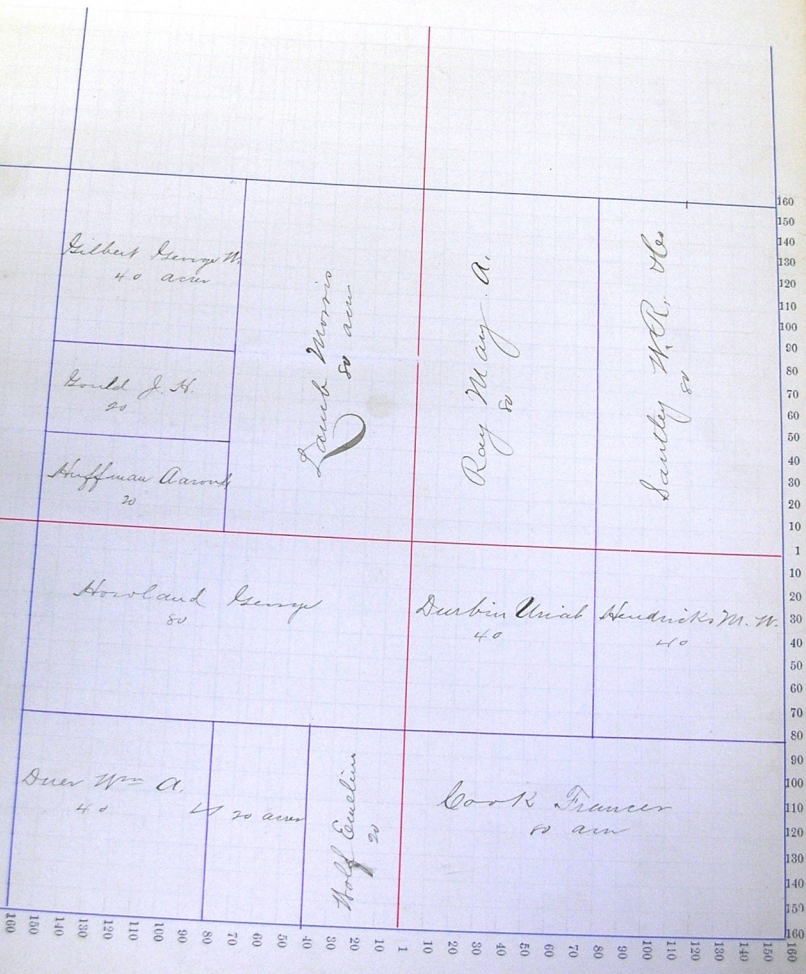 Gilbert George W.
40 acres
Gould J. H.
20
Huffman Aaron
20
Lamb Morris
80 acres
Ray May A.
80
W. R.
80
Howland George
80
Durbin Uriah
40
Hendricks M. W.
40
Duer Wm A.
40
20 acres
Wolf Emeline
20
Cook Frances
80 acres
160
150
140
130
120
110
100
90
80
70
60
50
40
30
20
10
1
10
20
30
40
50
60
70
80
90
100
110
120
130
140
150
160
160
150
140
130
120
110
100
90
80
70
60
50
40
30
20
10
1
10
20
30
40
50
60
70
80
90
100
110
120
130
140
150
160